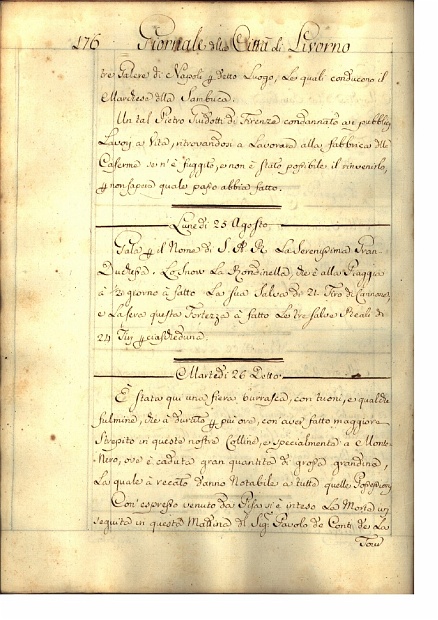 176 Giornale della Città di Livorno
tre Galere di Napoli p detto Luogo, Le quali conducono il
Marchese della Sambuca.
Un tal Pietro Guidotti di Firenze condannato ai pubblici
Lavori a Vita, ritrovandosi a Lavorare alla fabbrica delle
Caserme se n'è fuggito, e non è stato possibile il rinvenirlo,
p non sapersi quale passo abbia fatto.
Lunedì 25 Agosto
Gala p il Nome di S. A. R. La Serenissima Gran-
Duchessa. La La Rondinella, che è alla Spiaggia
à giorno à fatto La sua Salva di 21. Tiro di Cannone,
e La sera questa Fortezza à fatto Le tre salve Reali di
21 Tiri p ciascheduna.
Martedì 26 Detto
È stata qui una fiera burrasca, con tuoni, e qualche
fulmine, che à durato p più ore, con aver fatto maggiore
Strepito in queste nostre Colline, e specialmente a Monte-
Nero, ove è caduta gran quantità di grossa grandine,
La quale à recato danno Notabile a tutte quelle Possessioni
Con espresso venuto da Pisa si è inteso La Morte
seguita in questa Mattina di Sig. Pavolo de Conti de La
Torre